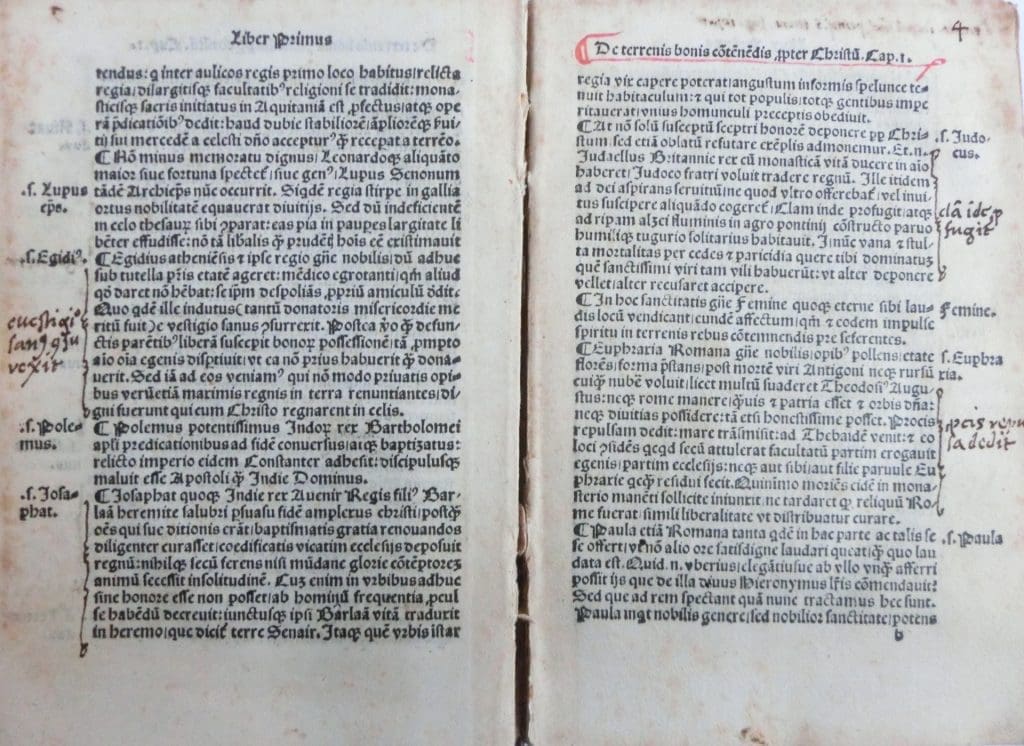 Liber Primus
tendus: q inter aulicos regis primo loco habitus/relicta
regia/dilargitisqꝫ facultatibꝰ religioni se tradidit: mona-
sticisqꝫ sacris initiatus in Aquitaniā est ꝓfectus/atqꝫ ope
rā p̄dicatiōibꝰ dedit: haud dubie stabiliorē/āpliorēqꝫ
tij sui mercedē a celesti dño acceptur
¶ Nō minus memoratu dignus/Leonardoqꝫ aliquāto
maior siue fortuna spectet/siue genꝰ/Lupus Senonum
tādē Archieps nūc occurrit. Siqdē regia stirpe in gallia
ortus nobilitatē equauerat diuitijs. Sed dū indeficientē
in celo thesaurū sibi ꝓparat: eas pia in paupes largitate li
bēter effudisse: nō tā libalis qꝫ prudētꝭ hois eē existimauit
¶ Egidius atheniēsis & ipse regio gñe nobilis/dū adhuc
sub tutella pr̄is etatē ageret: mēdico egrotanti/qm̄ aliud
qd daret nō hēbat: se ip̄m despoliās/ꝓpriū amiculū ōdit.
Quo qdē ille indutus (tantū donatoris misericordie me
ritū fuit) e vestigio sanus ꝯsurrexit. Postea v̄o qꝫ defun-
ctis parētibꝰ liberā suscepit bonoꝝ possessionē: tā ꝓmpto
aīo oīa egenis disptiuit/vt ea nō prius habuerit qꝫ dona-
uerit. Sed iā ad eos veniamꝰ qui nō modo priuatis opi-
bus verūetiā maximis regnis in terra renuntiantes/di-
gni fuerunt qui cum Christo regnarent in celis.
¶ Polemus potentissimus Indoꝝ rex Bartholomei
apl̄i predicationibus ad fidē conuersus/atqꝫ baptizatus:
relicto imperio eidem Constanter adhesit: discipulusqꝫ
maluit esse Apostoli qꝫ Indie Dominus.
¶ Iosaphat quoqꝫ Indie rex Auenir Regis filiꝰ Bar-
laā heremite salubri ꝑsuasu fidē amplexus christi/postqꝫ
oēs qui sue ditionis erāt/baptismatis gratia renouandos
diligenter curasset/coedificatis vicatim ecclesijs deposuit
regnū: nihilqꝫ secū ferens nisi mūdane glorie cōtēptoreꝫ
animū secessit insolitudinē. Cuꝫ enim in vrbibus adhuc
sine honore esse non posset/ab hominū frequentia/ꝓcul
se habēdū decreuit: iunctusqꝫ ipsi Barlaā vitā traduxit
in heremo/que dicit̄ terre Senair. Itaqꝫ quē vrbis istar
.s. Lupus
ep̄s.
.s. Egidiꝰ.
e uestigio
sanꝰ ꝯsu
rexit
.s. Pole-
mus.
.s. Iosa-
phat.
4
De terrenis bonis cōtēnēdis ,ꝓpter Christū. Cap. 1.
regia vix capere poterat/angustum informis spelunce te-
nuit habitaculum: & qui tot populis/totqꝫ gentibus impe
ritauerat/vnius homunculi preceptis obediuit.
¶ At nō solū susceptū sceptri honorē deponere ꝓp Chri-
stum/sed etiā oblatū refutare exēplis admonemur. Et.n.
Iudaellus Britannie rex cū monasticā vitā ducere in aīo
haberet/Iudoco fratri voluit tradere regnū. Ille itidem
ad dei aspirans seruitiū/ne quod vltro offerebat̄/vel inui-
tus suscipere aliquādo cogeret̄/Clam inde profugit/atqꝫ
ad ripam alzei fluminis in agro pontinij cōstructo paruo
humiliqꝫ tugurio solitarius habitauit. I nūc vana & stul-
ta mortalitas per cedes & paricidia quere tibi dominatuꝫ
quē sanctissimi viri tam vili habuerūt: vt alter deponere
vellet/alter recusaret accipere.
¶ In hoc sanctitatis gñe Femine quoqꝫ eterne sibi lau-
dis locū vendicant/eundē affectum/qm̄ & eodem impulse
spiritu in terrenis rebus cōtemnendis pre seferentes.
¶ Euphraxia Romana gñe nobilis/opibꝰ pollens/etate
florēs/forma p̄stans/post mortē viri Antigoni neqꝫ rursū
cuiqꝫ nubē voluit/licet multū suaderet Theodosiꝰ Augu-
stus: neqꝫ rome manere/quis & patria esset & orbis dn̄a:
neqꝫ diuitias possidere: tā etsi honestissime posset. Procis
repulsam dedit: mare trāsmisit: ad Thebaidē venit: & eo
loci ꝯsidēs qcqd secū attulerat facultatū partim erogauit
egenis/partim ecclesijs: neqꝫ aut sibi/aut filie paruule Eu
phraxie qcqꝫ residui fecit. Quinimmo moriēs eidē in mona-
sterio manēti sollicite iniunxit/ne tardaret qꝫ reliquū Ro-
me fuerat/simili liberalitate vt distribuatur curare.
¶ Paula etiā Romana tanta qdē in hac parte ac talis se
se offert/vt nō alio ore satisdigne laudari queat/qꝫ quo lau
data est. Quid.n. vberius/elegātiusue ab vllo vnqꝫ afferri
possit ijs que de illa diuus Hieronymus lr̄is cōmendauit?
Sed que ad rem spectant quā nunc tractamus hec sunt.
Paula inqt nobilis genere/sed nobilior sanctitate/potens
b
.s. Iudo-
cus.
clā īde ꝓ
fugit
Femine.
.s. Euphra
xia.
pcis repu
sa dedit
.s. Paula